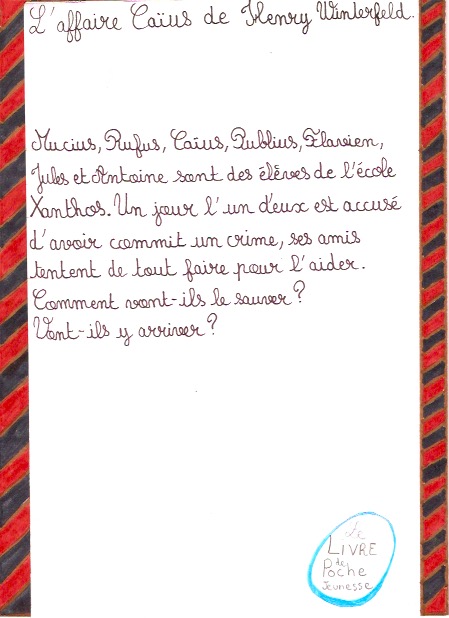 L'affaire Caïus de Henry Winterfeld.
Mucius, Rufus, Caïus, Publius, Flavien,
Jules et Antoine sont des élèves de l'école
Xanthos. Un jour l'un d'eux est accusé
d'avoir commit un crime, ses amis
tentent de tout faire pour l'aider.
Comment vont-ils le sauver?
Vont-ils y arriver?
Le
LIVRE
de
Poche
Jeunesse